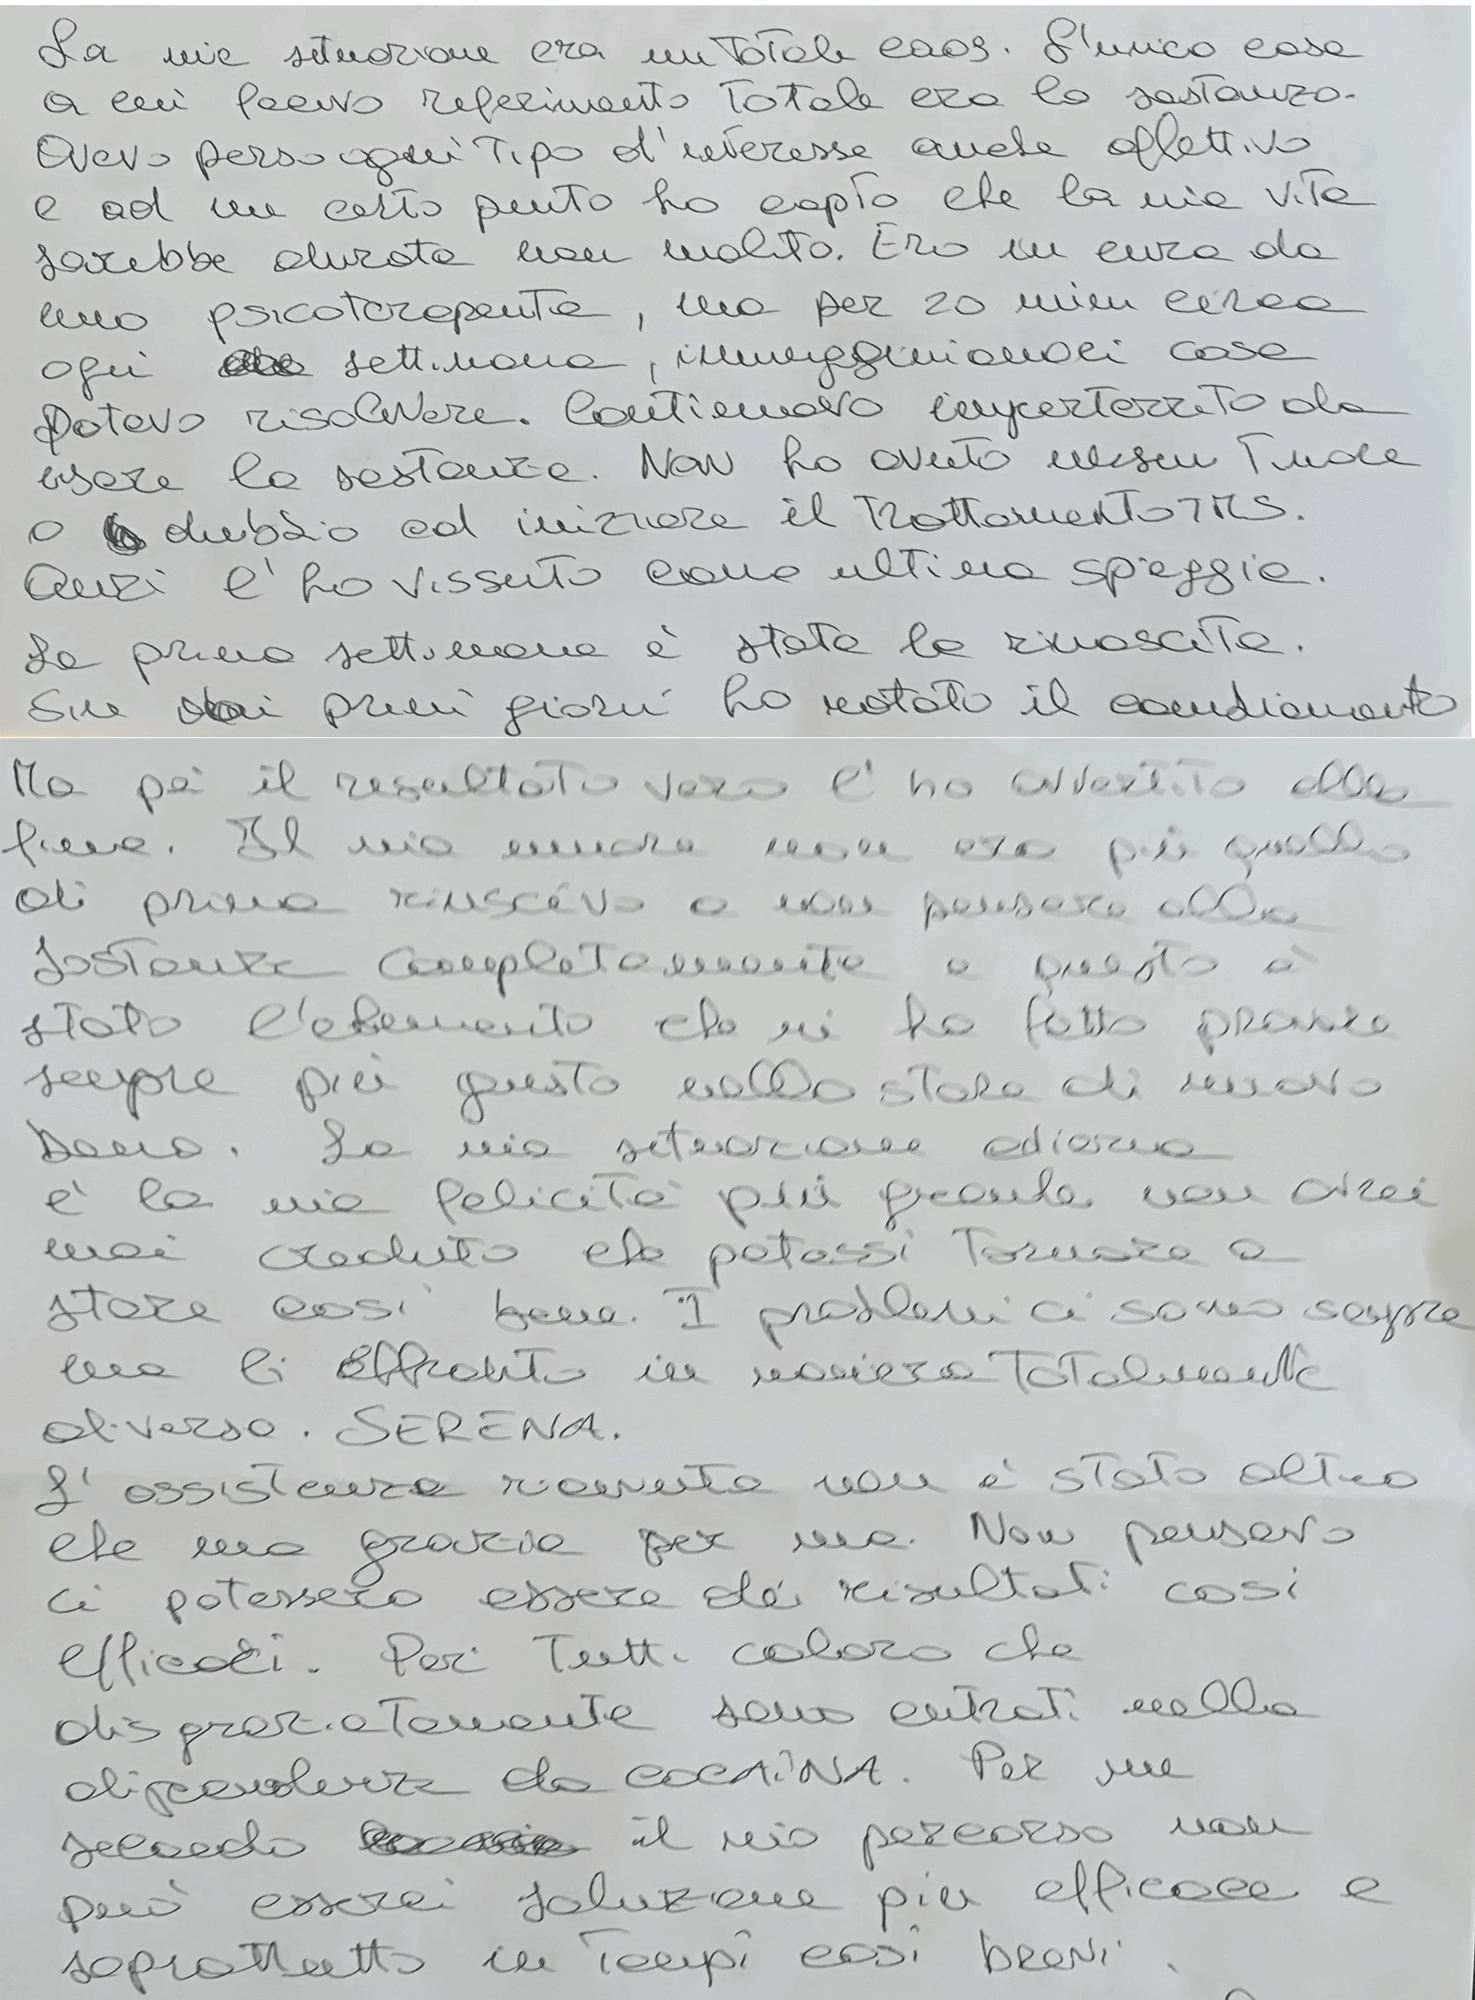 La mia situazione era un totale caos. L'unico cosa
a cui facevo referimento totale era la sostanza.
Avevo perso ogni tipo d'interesse anche affettivo
e ad un certo punto ho capto che la mia vita
sarebbe durata non molto. Ero in cura da
uno psicoterapeuta, ma per 20 min circa
ogni settimana, immagginiamoci cosa
potevo risolvere. Continuavo imperterrito da
usare la sostanza. Non ho avuto nessun
o dubbio ad iniziare il trattamento TMS.
Anzi l'ho vissuto come ultima spiaggia.
La prima settimana è stata la rinascita.
Sin dai primi giorni ho notato il
Ma poi il resultato vero l'ho avvertito alla
fine. Il mio umore non era più quello
di prima riuscivo a non pensare alla
sostanza completamente e questo è
stato l'elemento che mi ha fatto provare
sempre più gusto nello stare di nuovo
bene. La mia situazione odierna
è la mia felicità più grande non avrei
mai creduto che potessi tornare a
stare così bene. I problemi ci sono sempre
ma li affronto in maniera totalmente
diversa. SERENA.
L'assistenza ricevuta non è stato altro
che una grazia per me. Non pensavo
ci potessero essere dei risultati così
efficaci. Per tutti coloro che
disgraziatamente sono entrati nella
dipendenza da COCAINA. Per me
secondo il mio percorso non
può esserci soluzione più efficace e
soprattutto in tempi così brevi.